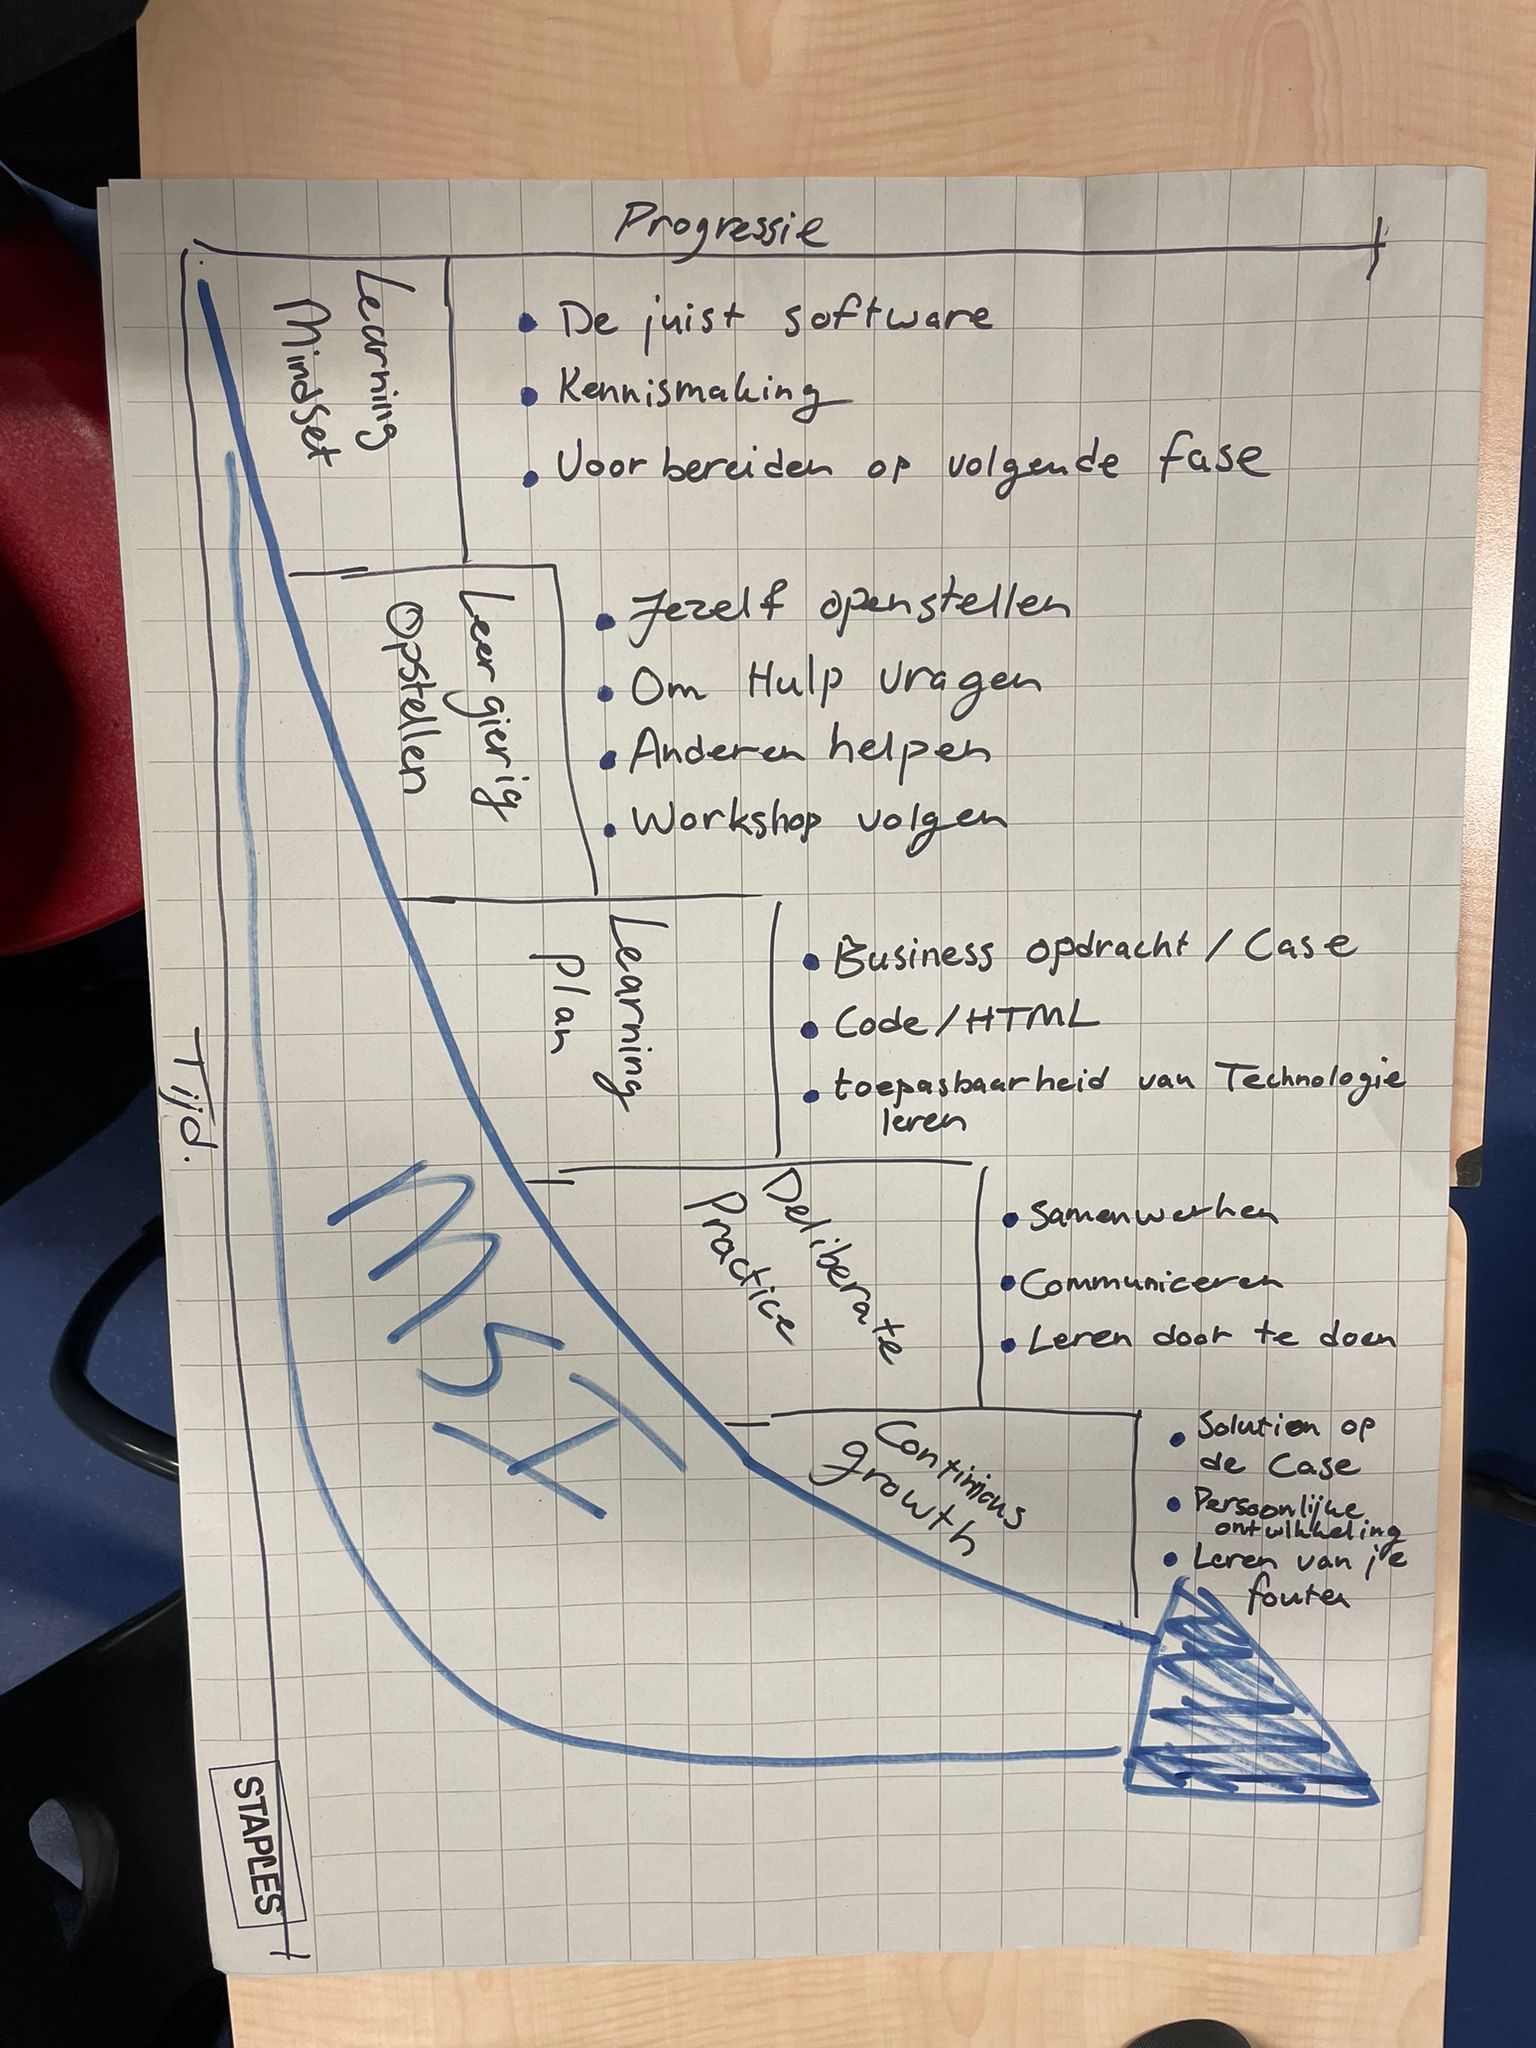 Progressie
Learning
Mindset
De juist software
Kennismaking
Voorbereiden op volgende fase
Leergierig
Opstellen
Jezelf openstellen
Om Hulp vragen
Anderen helpen
Workshop volgen
Learning
plan
Business opdracht / Case
Code / HTML
toepasbaarheid van Technologie
leren
Tijd.
Deliberate
Practice
Samenwerken
Communiceren
Leren door te doen
Continious
growth
Solution op
de Case
Persoonlijke
ontwikkeling
Leren van je
fouten
STAPLES